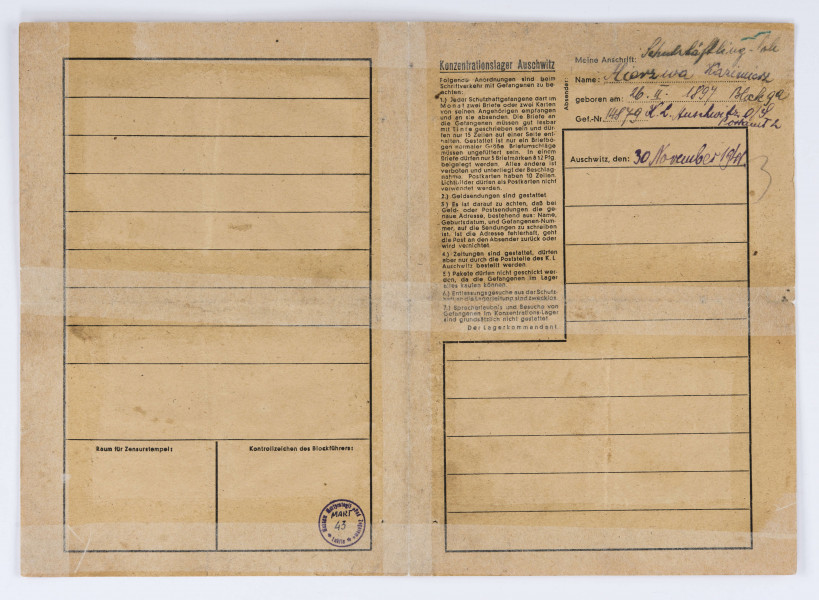 Raum für Zensurstempel:
Kontrollzeichen des Blockführers:
MART
43
Konzentrationslager Auschwitz
Folgende Anordnungen sind beim
Schriftverkehr mit Gefangenen zu be-
achten:
1.) Jeder Schutzhaftgefangene darf im
Monat zwei Briefe oder zwei Karten
von seinen Angehörigen empfangen
und an sie absenden. Die Briefe an
die Gefangenen müssen gut lesbar
mit Tinte geschrieben sein und dür-
fen nur 15 Zeilen auf einer Seite ent-
halten. Gestattet ist nur ein Briefbo-
gen normaler Größe. Briefumschläge
müssen ungefüttert sein. In einem
Briefe dürfen nur 5 Briefmarken à 12 Pfg.
beigelegt werden. Alles andere ist
verboten und unterliegt der Beschlag-
nahme. Postkarten haben 10 Zeilen.
Lichtbilder dürfen als Postkarten nicht
verwendet werden.
2.) Geldsendungen sind gestattet.
3.) Es ist darauf zu achten, daß bei
Geld- oder Postsendungen die ge-
naue Adresse, bestehend aus: Name,
Geburtsdatum, und Gefangenen-Num-
mer, auf die Sendungen zu schreiben
ist. Ist die Adresse fehlerhaft, geht
die Post an den Absender zurück oder
wird vernichtet.
4.) Zeitungen sind gestattet, dürfen
aber nur durch die Poststelle des K. L.
Auschwitz bestellt werden.
5.) Pakete dürfen nicht geschickt wer-
den, da die Gefangenen im Lager
alles kaufen können.
6.) Entlassungsgesuche aus der Schutz-
haft an die Lagerleitung sind zwecklos.
7.) Sprecherlaubnis und Besuche von
Gefangenen im Konzentrations-Lager
sind grundsätzlich nicht gestattet.
Der Lagerkommandant
Absender:
Meine Anschrift: Schutzhäftling
Name: Marzwa Kazimierz
geboren am: 26. II. 1897 Block 9a
Gef.-Nr. 14879 K.L. Auschwitz O/S
Postamt 2
Auschwitz, den: 30 November 1941